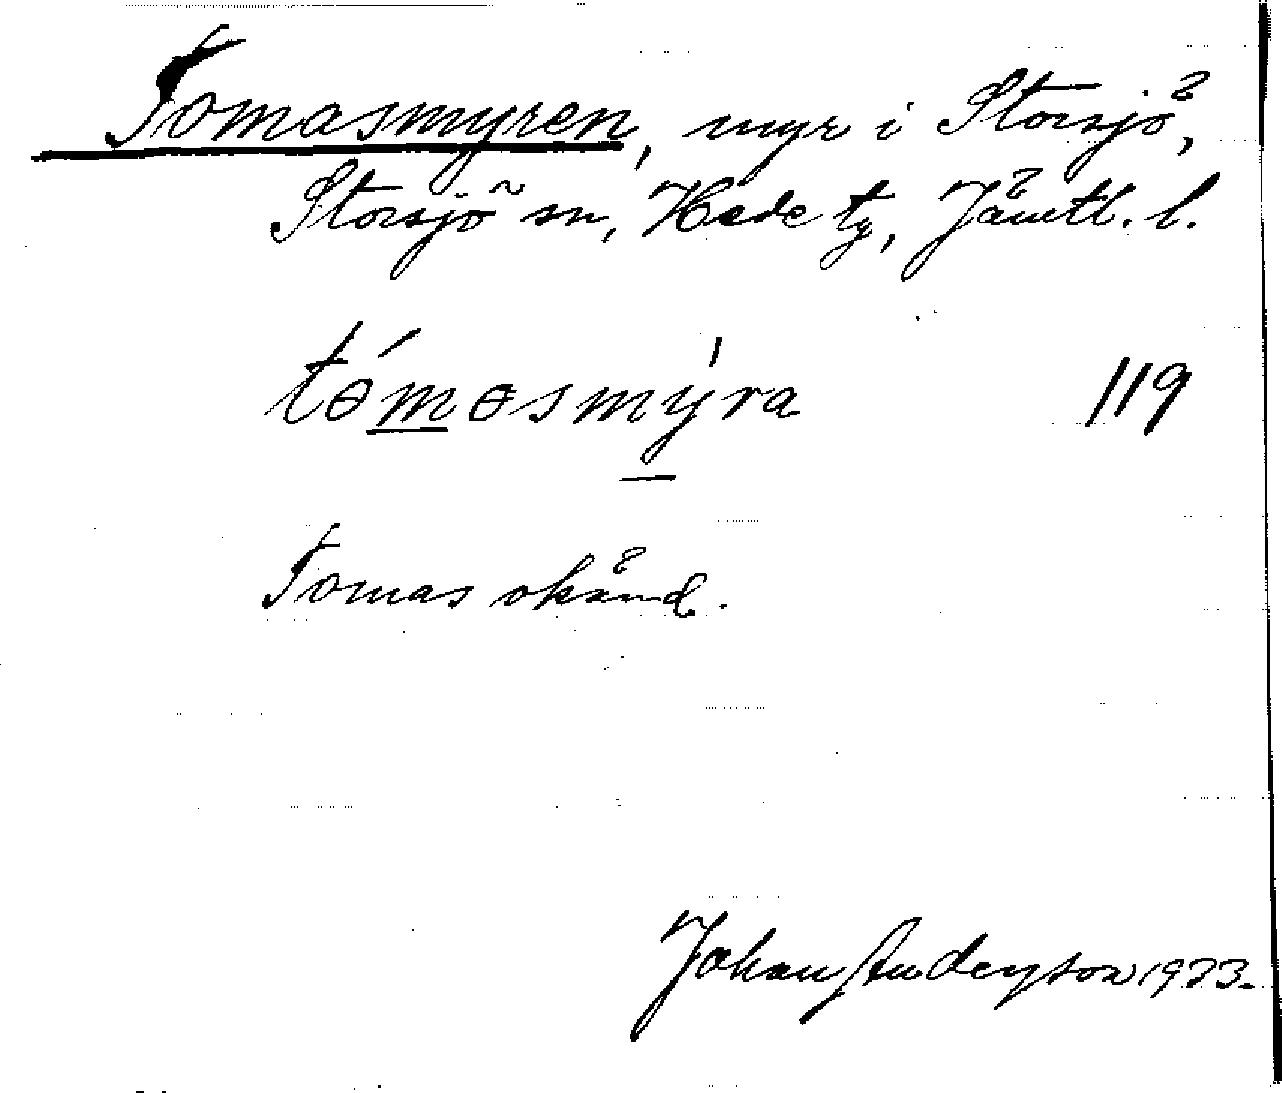 Tomasmyren, myr i Storsjö,
Storsjö sn, Hede tg, Jämtl. l.
tómosmýra 119
Tomas okänd.
Johan Anderson 1933.